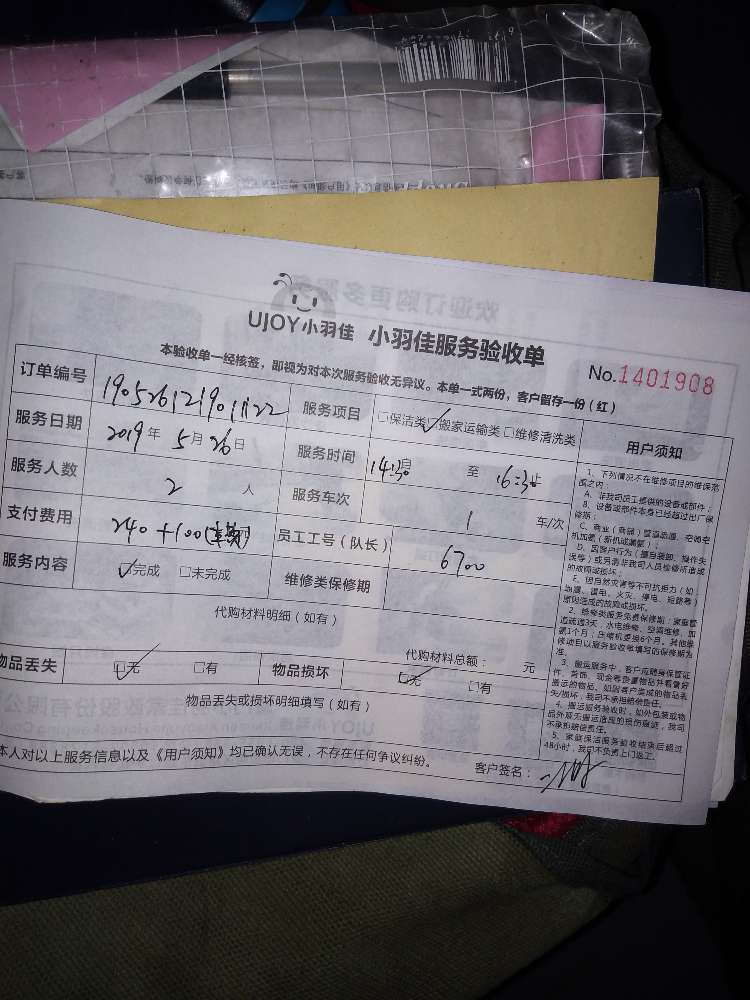 UJOY小羽佳 小羽佳服务验收单
No.1401908
本验收单一经核签，即视为对本次服务验收无异议。本单一式两份，客户留存一份（红）
订单编号 190526121901122 服务项目 □保洁类 ☑搬家运输类 □维修清洗类
服务日期 2019年5月26日 服务时间 14:30 至 16:30
服务人数 2 人 服务车次 1 车/次
支付费用 240+100 员工工号（队长） 6700
服务内容 ☑完成 □未完成 维修类保修期
代购材料明细（如有）
代购材料总额： 元
物品丢失 ☑无 □有 物品损坏 ☑无 □有
物品丢失或损坏明细填写（如有）
本人对以上服务信息以及《用户须知》均已确认无误，不存在任何争议纠纷。
客户签名：
用户须知
1、下列情况不在维修项目的维保范
围之内：
A、非我司员工提供的设备或部件；
B、设备或部件本身已经超过出厂保
修期；
C、商业（商铺）管道疏通、空调空
机加氟（新机或漏氟）；
D、因客户行为（擅自装卸、操作失
误等）或另请非我司人员检修所造成
的故障或损坏。
E、因自然灾害等不可抗拒力（如
地震、雷电、火灾、停电、短路等）
原因造成的故障或损坏。
2、维修类服务免费保修期：家庭管
道疏通3天，水电维修、空调维修、加
氟1个月；压缩机更换6个月。其他维
修项目以服务验收单填写的保修期为
准。
3、搬运服务中，客户应随身保管证
件、首饰、现金等贵重物品并看管好
搬运的物品。如因客户造成的物品丢
失/损坏，我司不承担赔偿责任。
4、搬运服务验收时，如外包装或物
品外观无搬运造成的损伤痕迹，我司
不承担赔偿责任。
5、家庭保洁服务验收结束后超过
48小时，我司不负责上门返工。